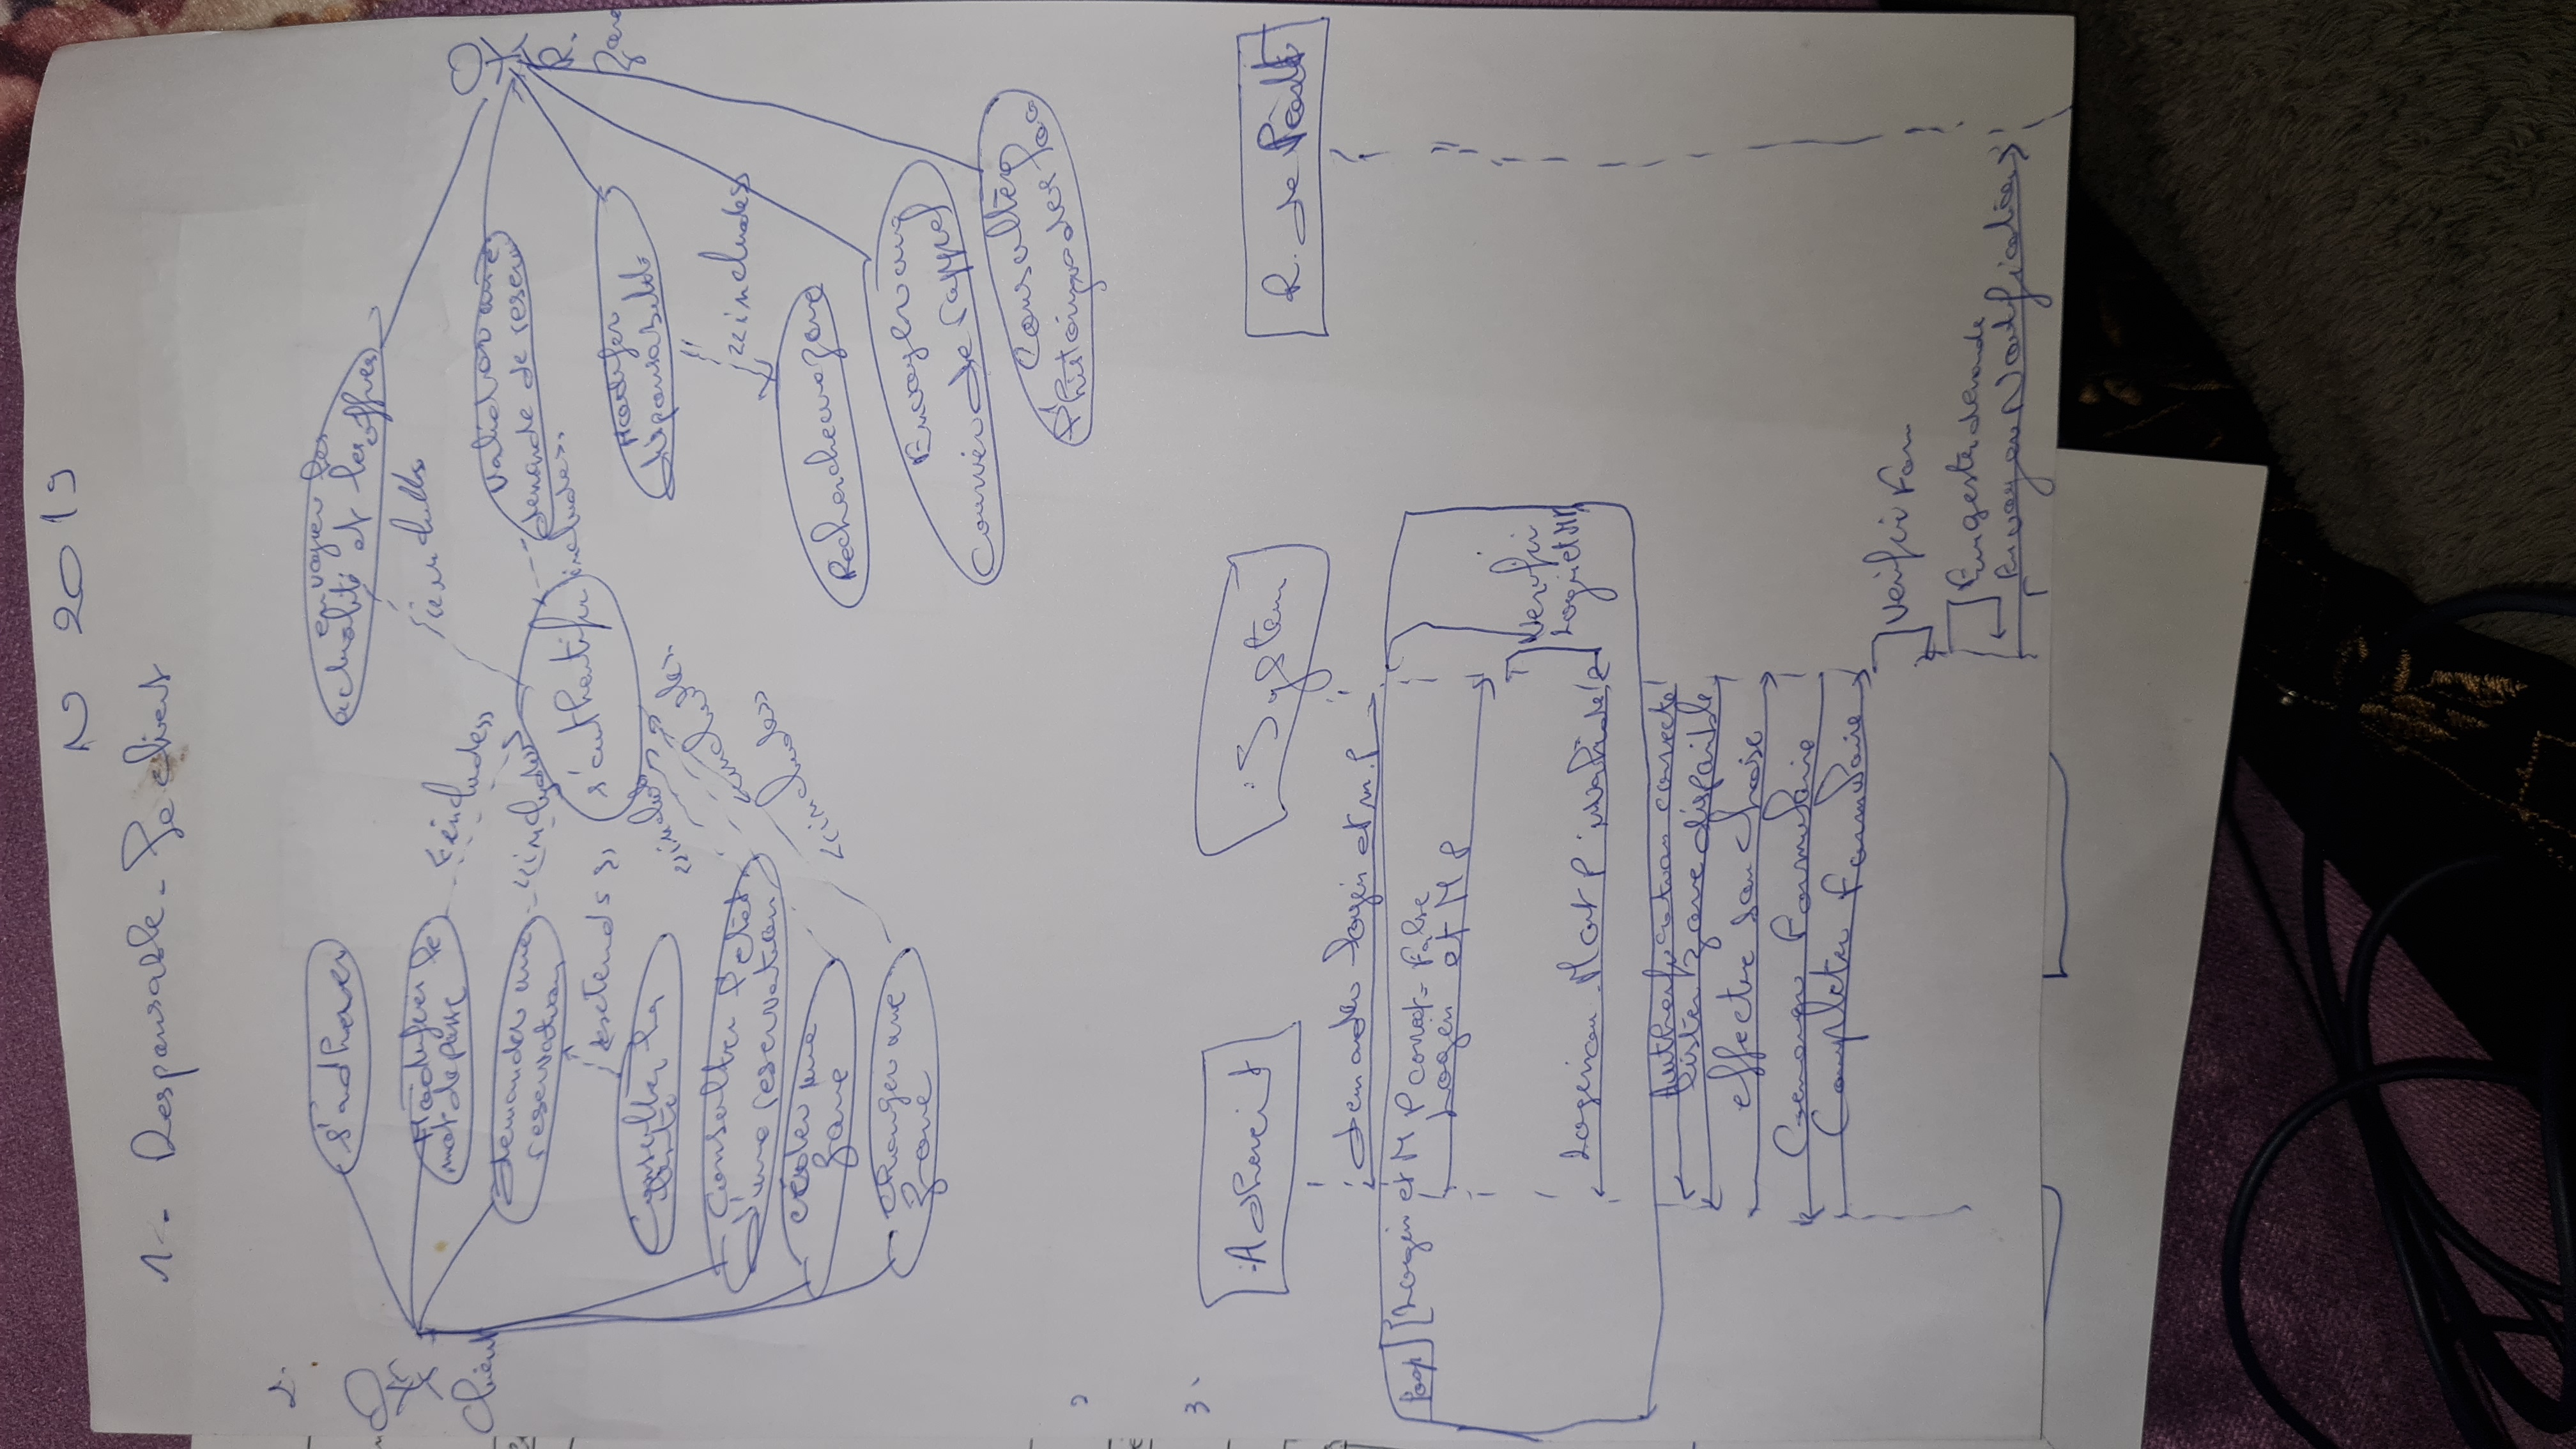 N 2019
1- Responsable - Le client
2-
s'adherer
Modifier le
mot de passe
<<includes>>
demander une
reservation
<<includes>>
<<extends>>
Client
Consulter la
liste
Consulter l'etat
d'une reservation
une
zone
changer une
zone
envoyer les
actualité et les offres
<<includes>>
s'authentifier
Valider une
demande de reserv
<<includes>>
R.
zone
<<includes>>
<<includes>>
<<includes>>
Modifier
disponsabilité
<<includes>>
Recherche une zone
Envoyer un
courrier de rappel
Consulter
l'historique des loc
3-
:Adherent
:System
R. de
demander login et m.P
loop [Login et M P correct = False
Login et M P
Verifier
Login et MP
Login ou Mot P invalide
Authentification correcte
lister zone disponible
effectue son choix
Formulaire
Completer Formulaire
Verifier Form
demande
Envoyer Notification